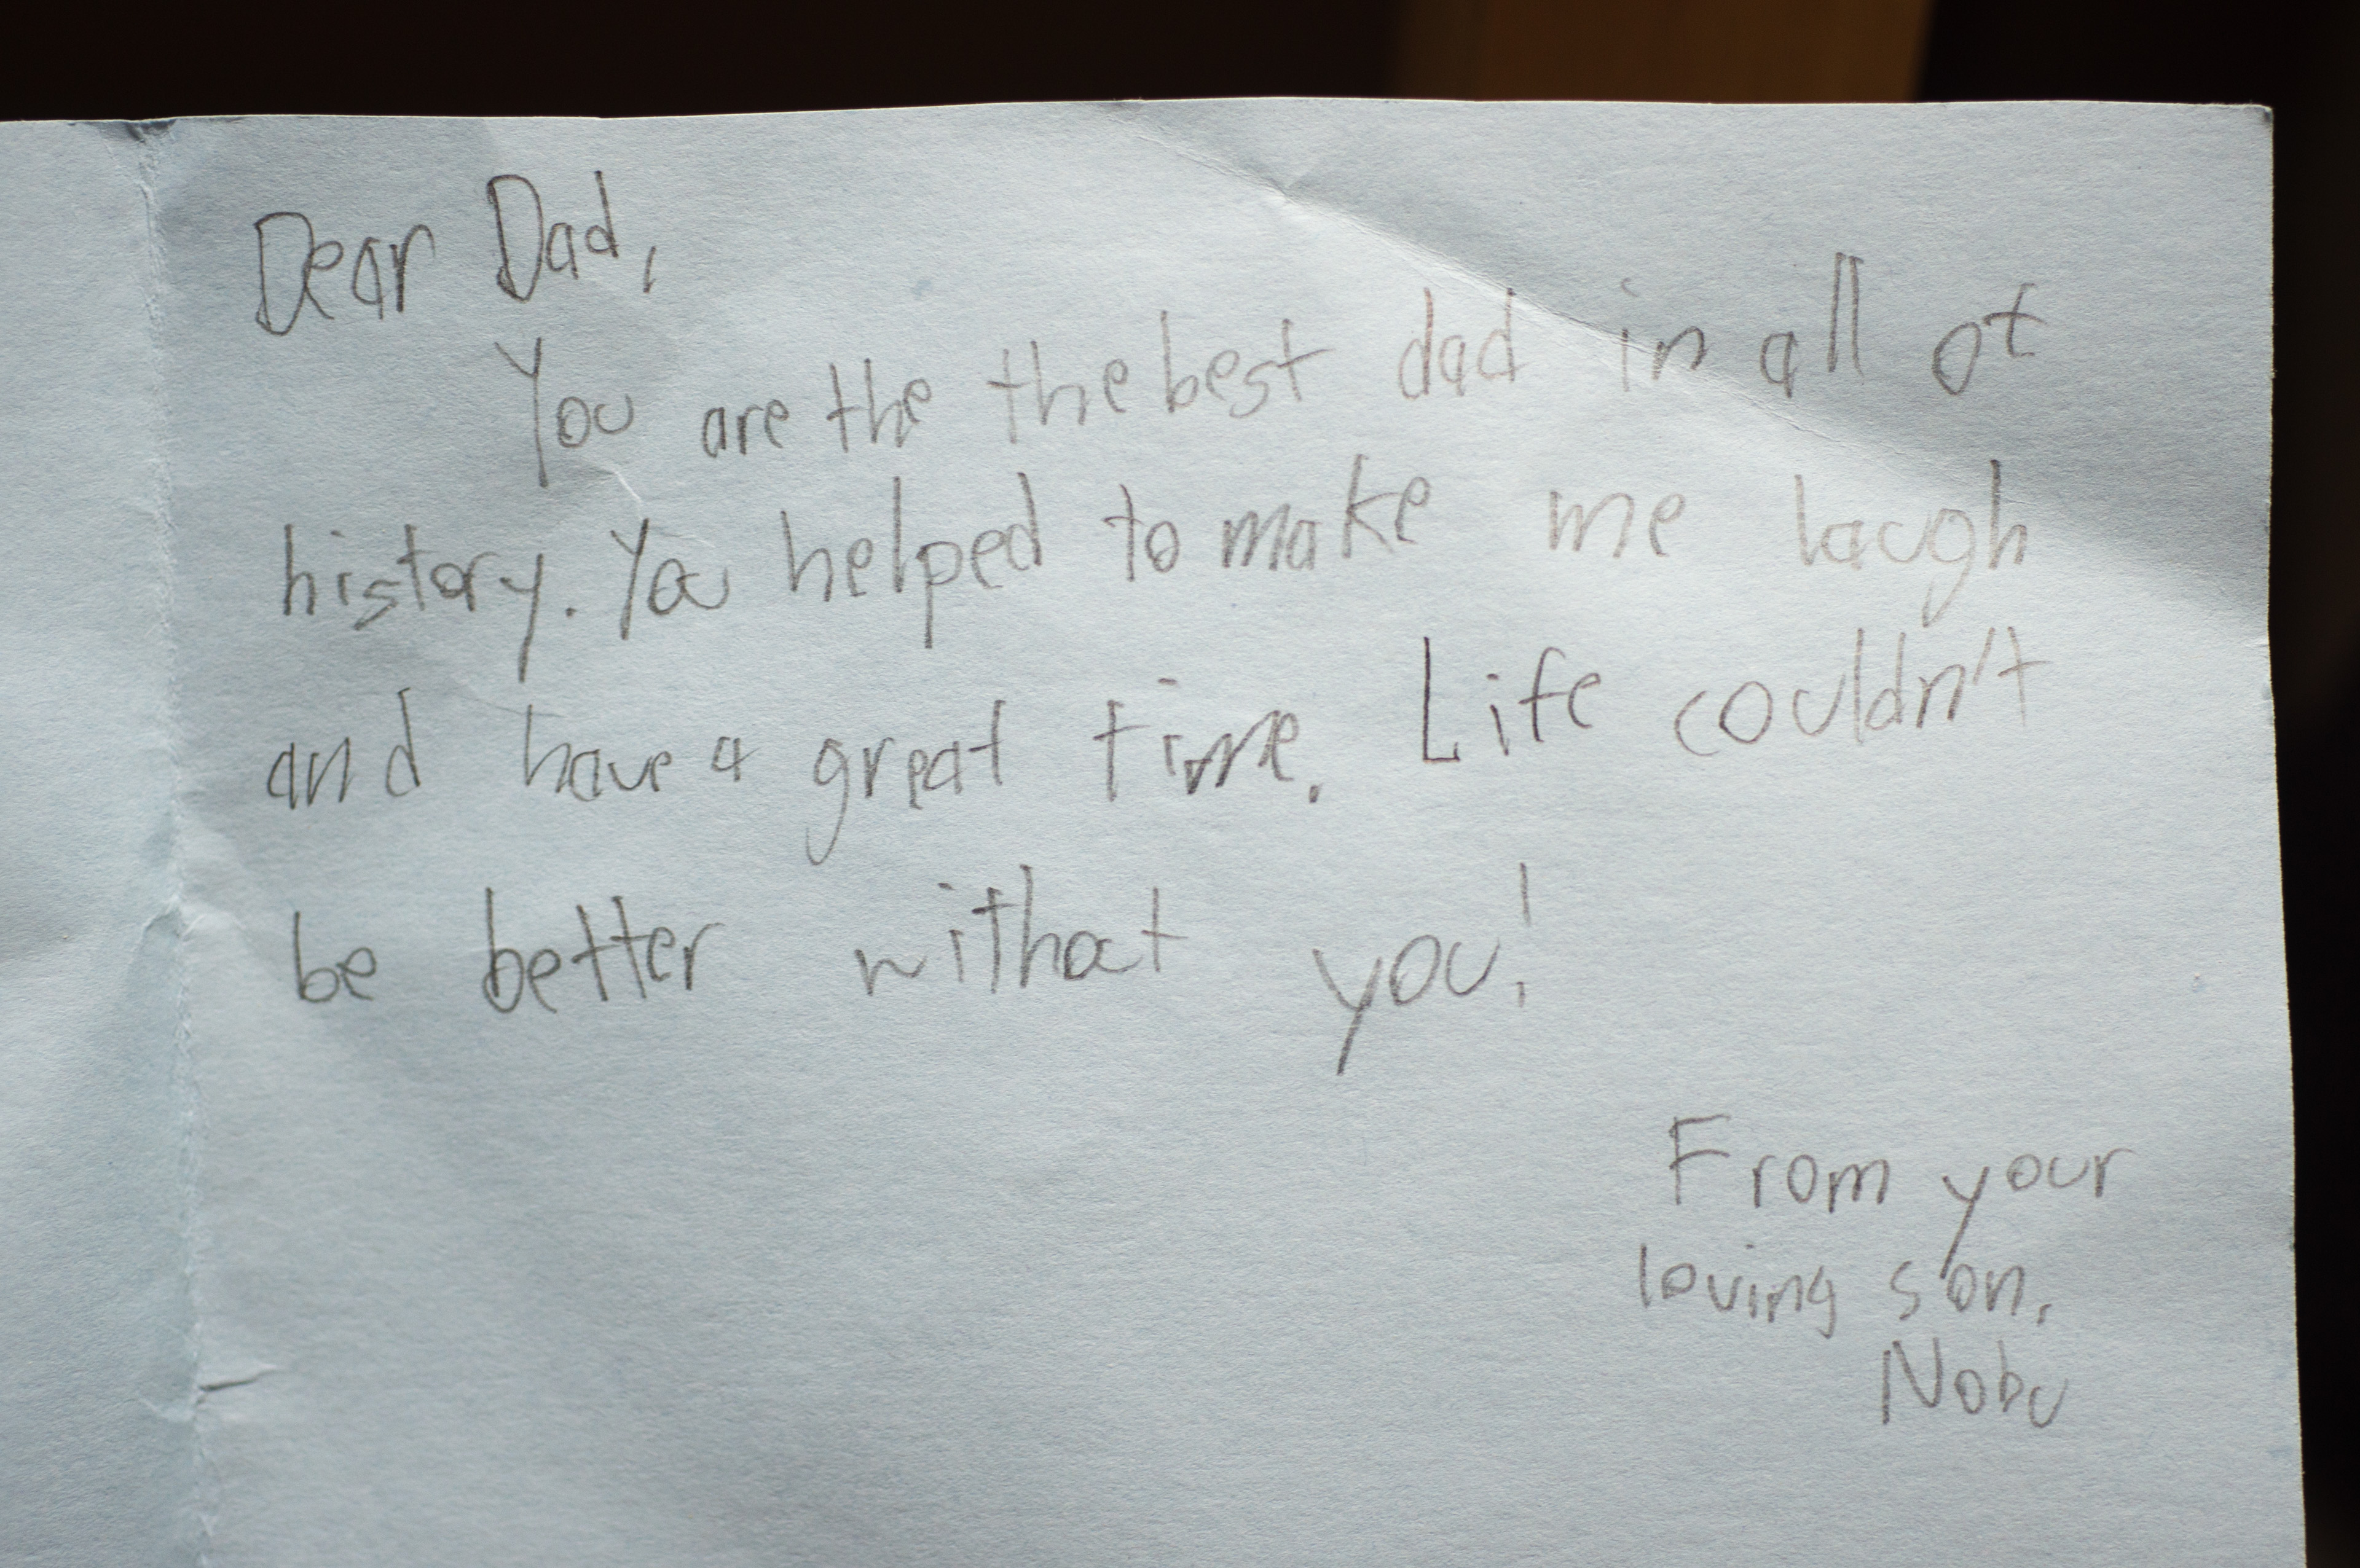 Dear Dad,
You are the the best dad in all of
history. You helped to make me laugh
and have a great time. Life couldn't
be better without you!
From your
loving son,
Nobu